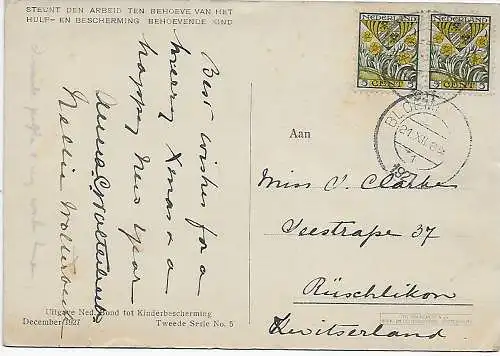 STEUNT DEN ARBEID TEN BEHOEVE VAN HET
HULP- EN BESCHERMING BEHOEVENDE KIND
Best wishes for a
merry Xmas & a
happy New Year
Nellie
NEDERLAND
5 CENT 5
NEDERLAND
5 CENT 5
21.XII
1
192
Aan
Miss V. Clarke
Seestraße 37
Rüschlikon
Zwitserland
Uitgave Ned. Bond tot Kinderbescherming
December 1927 Tweede Serie No. 5